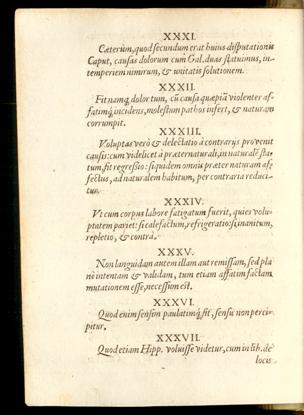 XXXI.
Cæterùm, quod secundum erat huius disputationis
Caput, causas dolorum cum Gal. duas statuimus, in-
temperiem nimirum, & unitatis solutionem.
XXXII.
Fit namq; dolor tum, cũ causa quæpiã violenter af-
fatimq; incidens, molestum pathos infert, & naturam
corrumpit.
XXXIII.
Voluptas verò & delectatio à contrarijs provenit
causis: cum videlicet à præternaturali, in naturalẽ sta-
tum, fit regressio: siquidem omnis præter naturam af-
fectus, ad naturalem habitum, per contraria reduci-
tur.
XXXIV.
Vt cum corpus labore fatigatum fuerit, quies volu-
ptatem pariet: si calefactum, refrigeratio: si inanitum,
repletio, & contrà.
XXXV.
Non languidam autem illam aut remissam, sed pla
nè intentam & validam, tum etiam affatim factam
mutationem esse, necessum est.
XXXVI.
Quod enim sensim paulatimq; fit, sensu non perci-
pitur.
XXXVII.
Quod etiam Hipp. voluisse videtur, cum in lib. de
locis